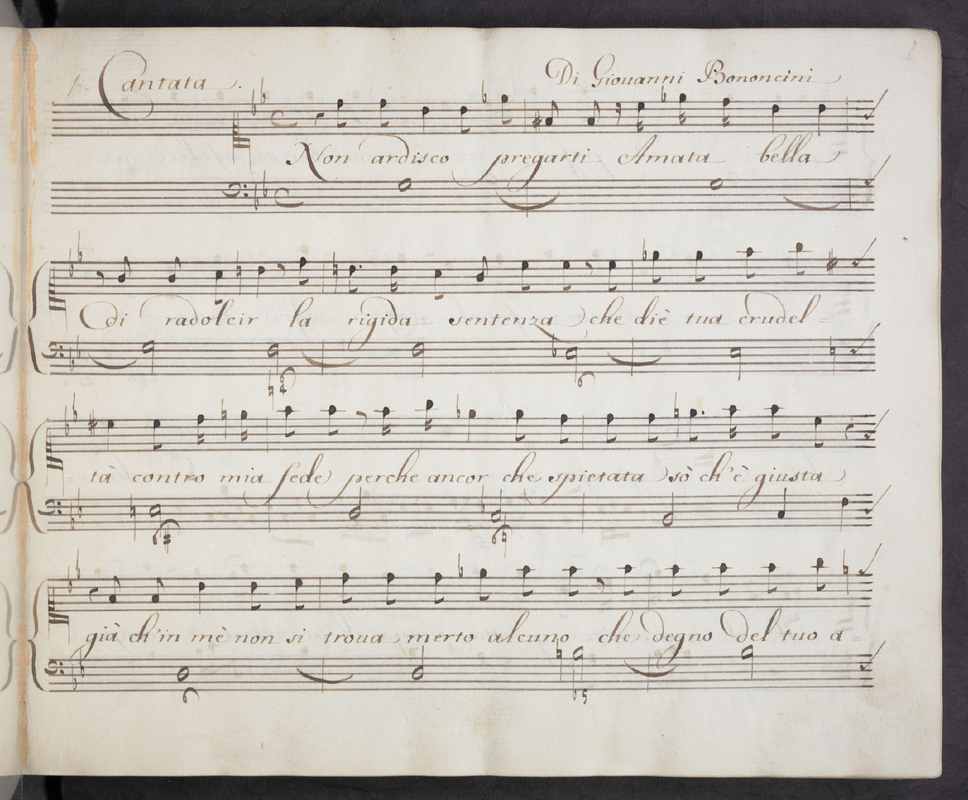 Cantata. Di Giouanni Bononcini
Non ardisco pregarti Amata bella
di radolcir la rigida sentenza che diè tua crudel=
=tà contro mia fede perche ancor che spietata sò ch'è giusta
già ch'in mè non si troua merto alcuno che degno del tuo a=